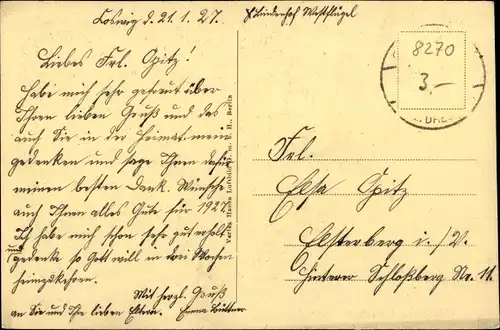 Coswig d. 21.1.27.
Lindenhof Westflügel
Liebes Frl. Opitz!
Habe mich sehr gefreut über
Ihren lieben Gruß und das
auch Sie in der Heimat mein
gedenken und sage Ihnen dafür
meinen besten Dank. Wünsche
auch Ihnen alles Gute für 1927.
Ich habe mich schon sehr gut erholt
und
gedenke so Gott will in drei Wochen
heimzukehren.
Mit herzl. Gruß
an Sie und Ihre lieben Eltern. Emma Büttner
Verlag Hansa Luftbild G. m. b. H., Berlin
8270
3,-
Frl.
Elsa Opitz
Elsterberg i./V.
Hinterer Schloßberg No. 11.